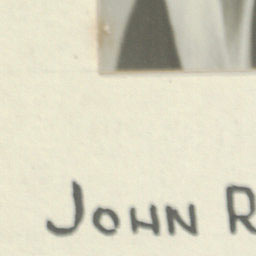 John R